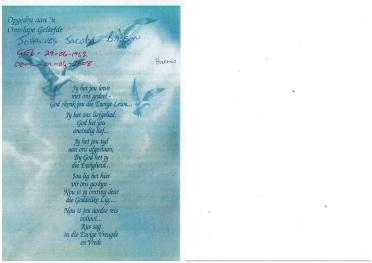 Opgedra aan 'n
Ontslape Geliefde
Johannes Jacobus
Geb - 29-06-1962
Jy het jou lewe
met ons gedeel -
God skenk jou die Ewige Lewe...
Jy het ons liefgehad;
God het jou
oneindig lief...
Jy het jou tyd
aan ons afgestaan;
By God het jy
die Ewigheid...
Jou lig het hier
vir ons geskyn -
Nou is jy omring deur
die Goddelike Lig...
Nou is jou aardse reis
voltooi...
Rus sag
in die Ewige Vreugde
en Vrede